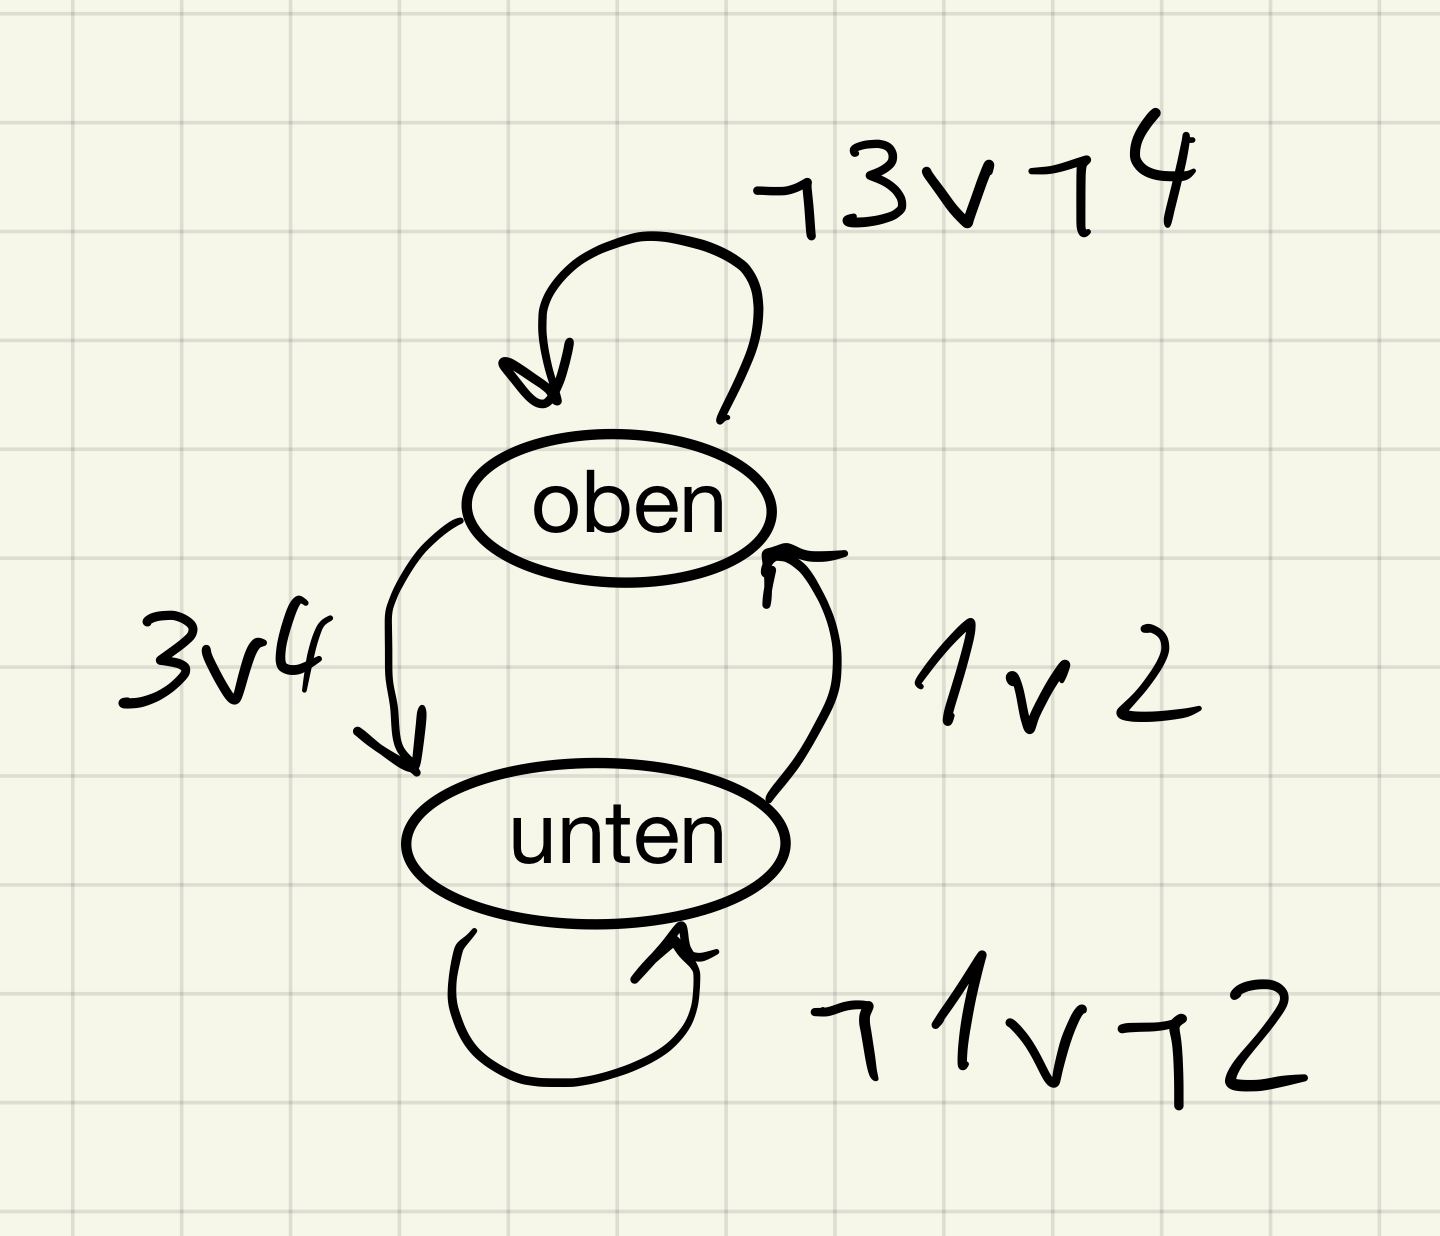 ¬3∨¬4
oben
3∨4
1∨2
unten
¬1∨¬2